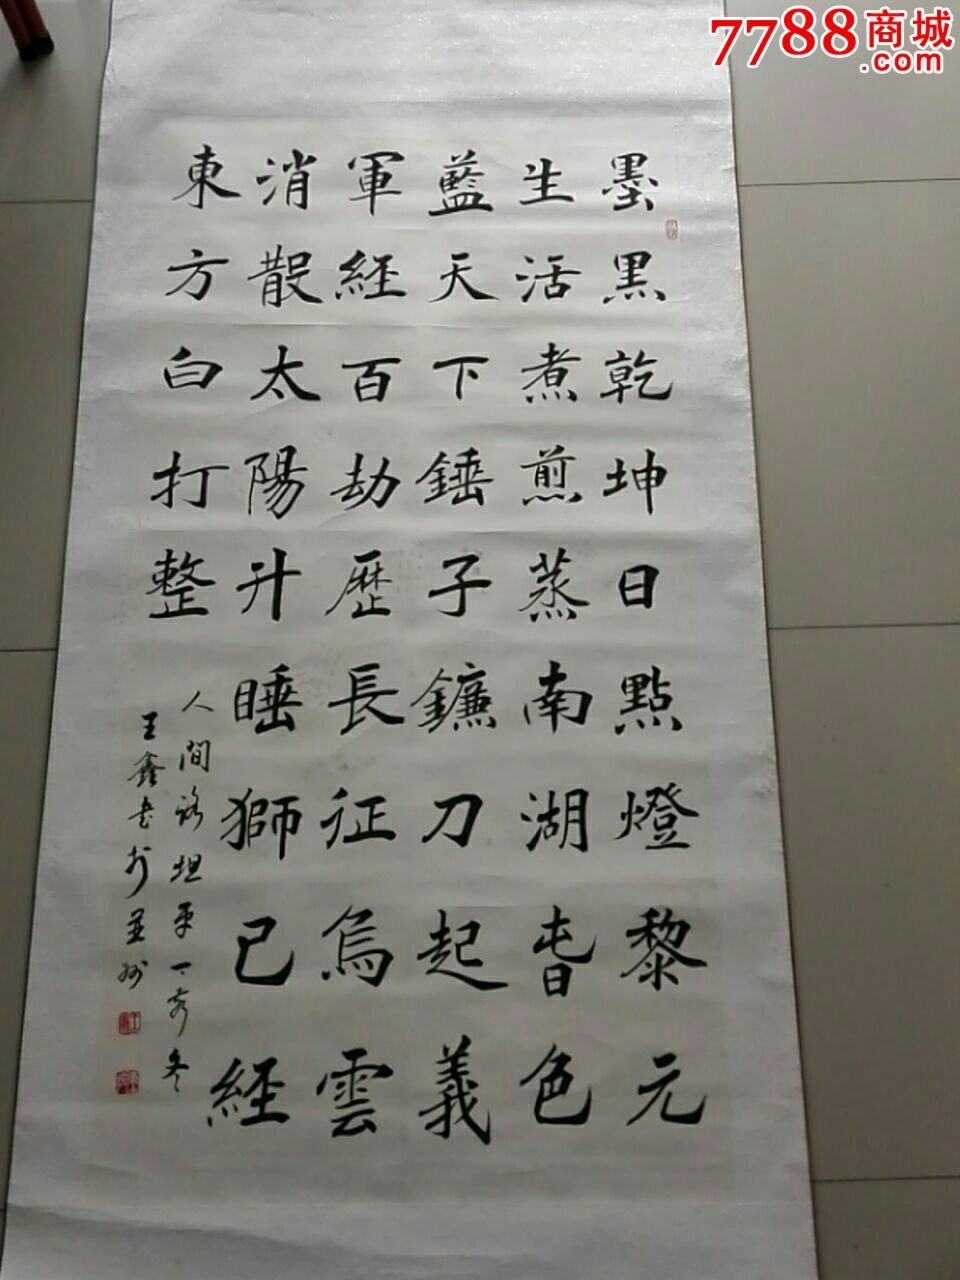 7788商城
.com
墨黑乾坤日點燈黎元
生活煮煎蒸南湖春色
藍天下錘子鐮刀起義
軍經百劫歷長征烏雲
消散太陽升睡獅已經
東方白打整
人間路坦平丁亥冬
王鑫書於並州